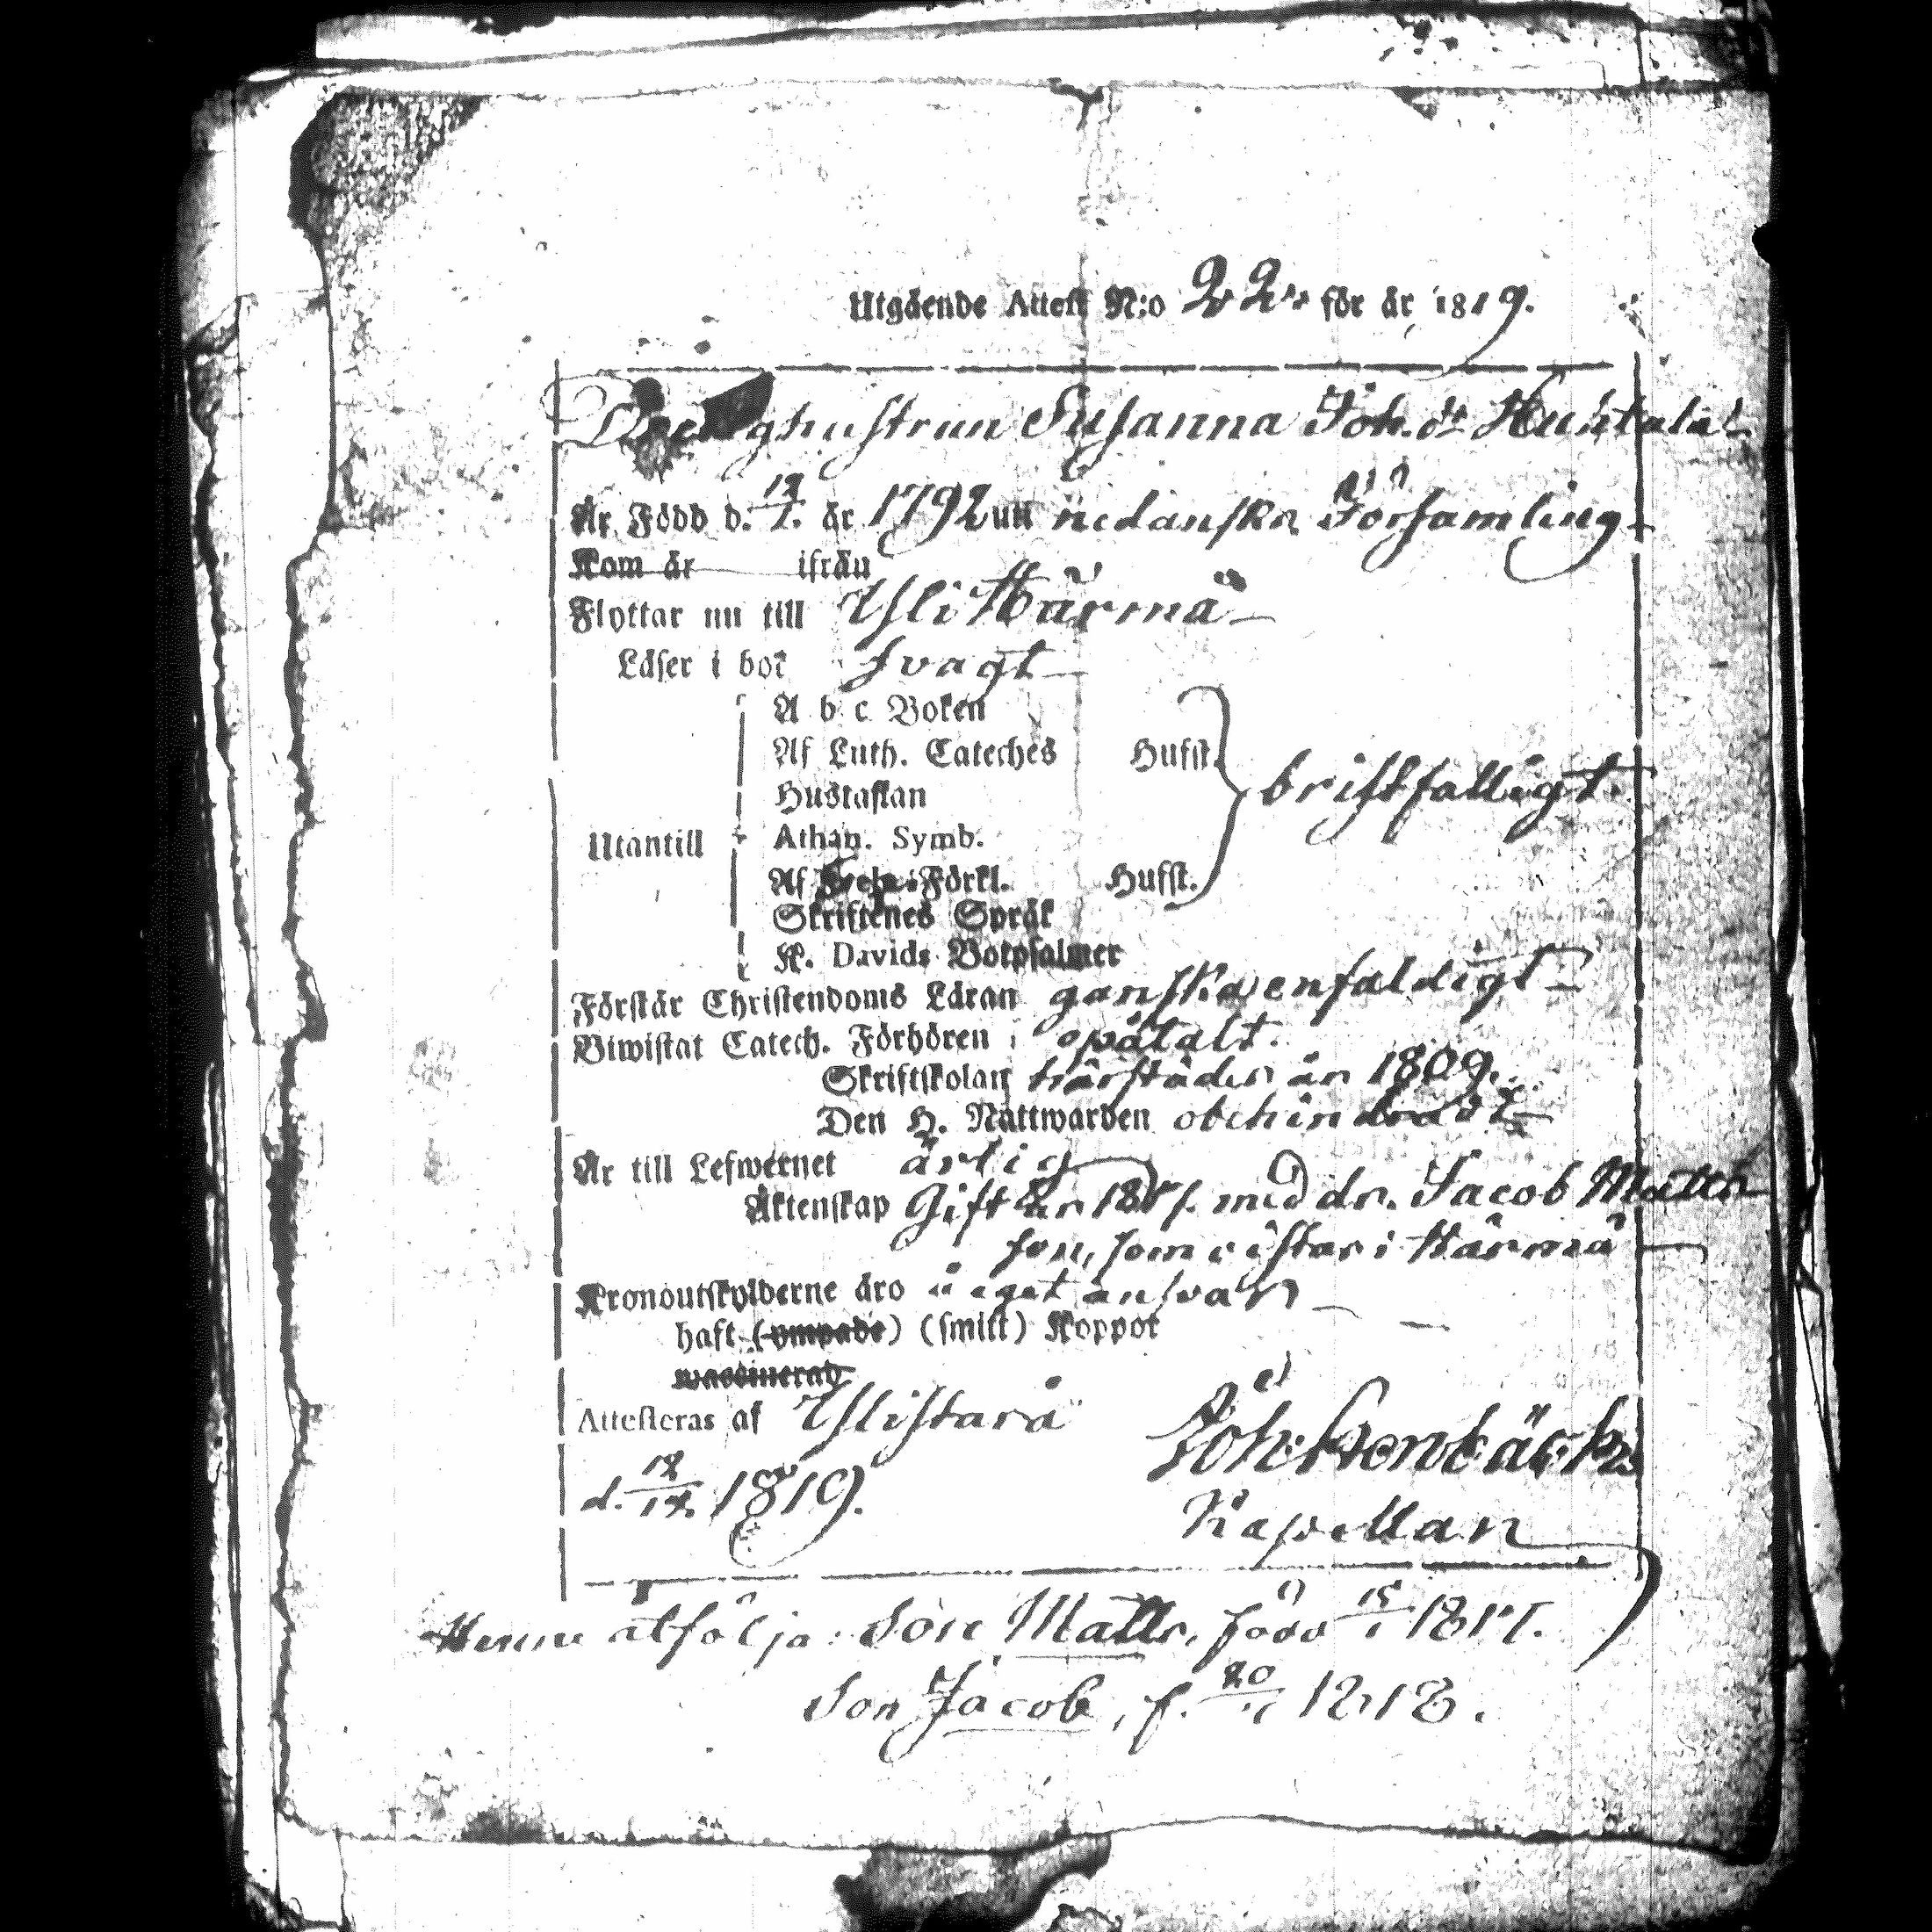 Utgående Attest N:o 22. för år 1819.
Drenghustrun Susanna Joh. dr Huhtala
Är Född d. 12/1. år 1792 uti nedanskr. Församling
Kom år ifrån
Flyttar nu till Ylihärmä
Läser i bok svagt
A b c Boken
Af Luth. Cateches Hufst.
Hustaflan bristfälligt
Utantill Athan. Symb.
Af Förkl. Hufst.
Skriftenes Språk
K. Davids Botpsalmer
Förstår Christendoms Läran ganska enfaldigt
Biwistat Catech. Förhören opåtalt.
Skriftskolan härstädes år 1809.
Den H. Nattwarden obehindradt
Är till Lefwernet ärlig
Äktenskap Gift år med dr. Jacob Matts
son, som vistas i Härmä
Kronoutskylderne äro å eget ansvar
haft (ympade) (smitt) Koppor
waccinerad
Attesteras af Ylistaro
d. 12/12 1819. Joh:
Kapellan
Henne åtfölja: Son Matts, född 15/1 1817.
Son Jacob, f. 1818.